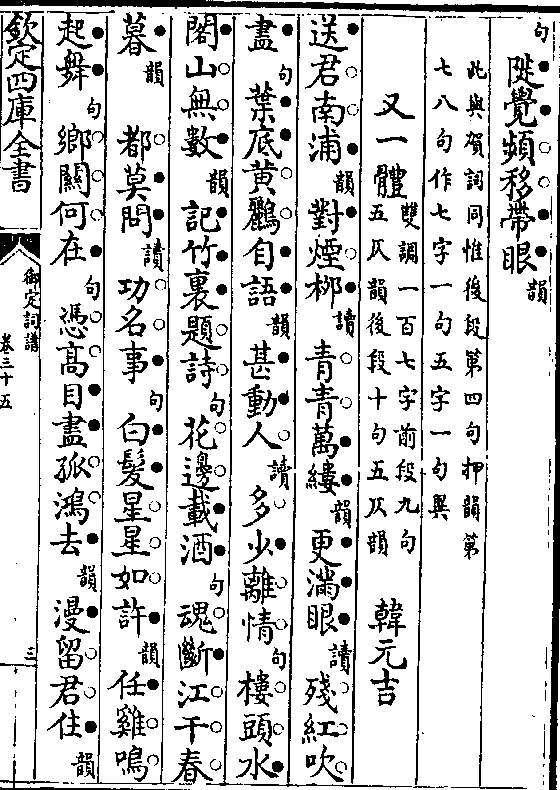 句 陡覺頻移帶眼韻
此與賀詞同惟後段第四句押韻第
七八句作七字一句五字一句異
又一體 雙調一百七字前段九句
五仄韻後段十句五仄韻 韓元吉
送君南浦韻對煙柳讀青青萬縷韻更滿眼讀殘紅吹
盡句葉底黃鸝自語韻甚動人讀多少離情句樓頭水
闊山無數韻記竹裏題詩句花邊載酒句魂斷江干春
暮韻 都莫問讀功名事句白髮星星如許韻任雞鳴
起舞句鄉關何在句憑高目盡孤鴻去韻漫留君住韻
欽定四庫全書
御定詞譜
卷三十五
三